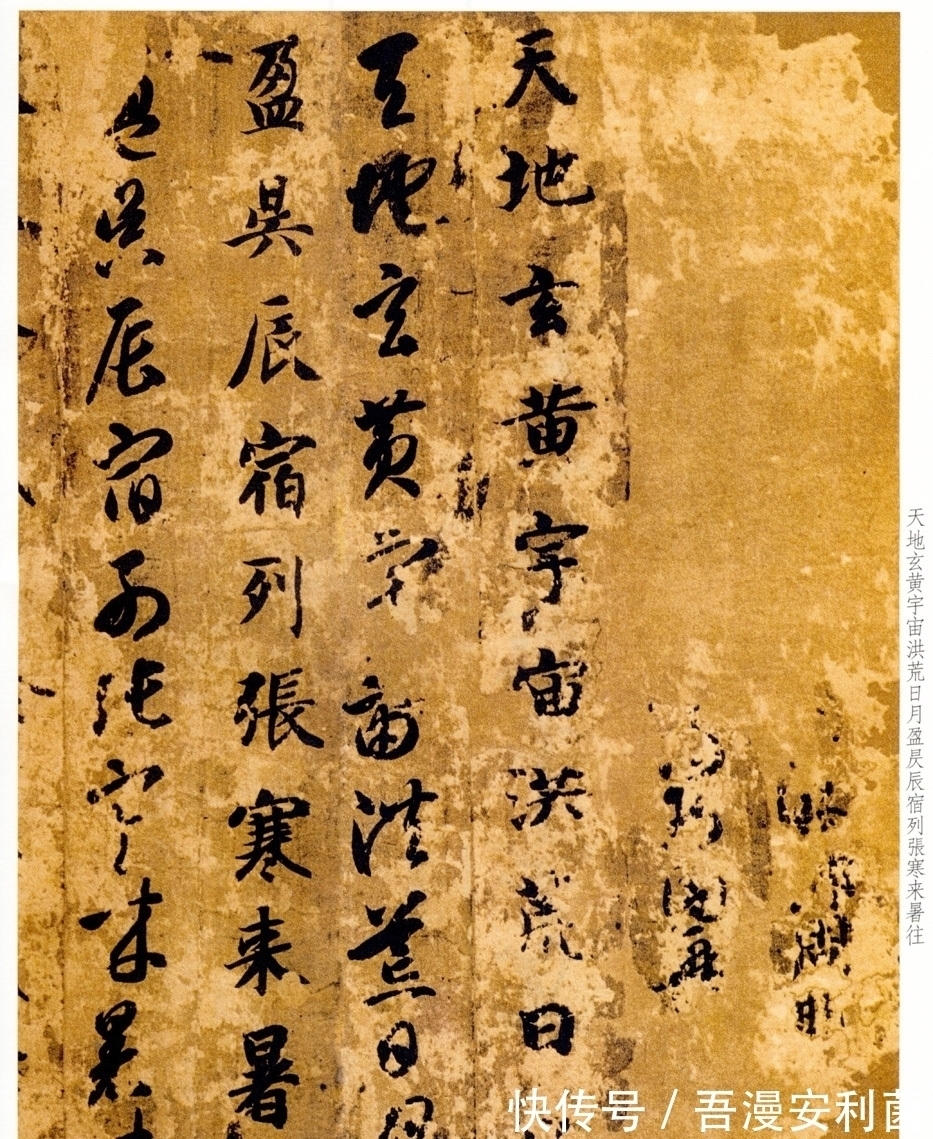 天地玄黄宇宙洪荒日月盈昃辰宿列張寒来暑往
天地玄黄宇宙洪荒日
天地玄黄宇宙洪荒日月
盈昃辰宿列張寒来暑
盈昃辰宿列張寒来暑
快传号 / 吾漫安利菌